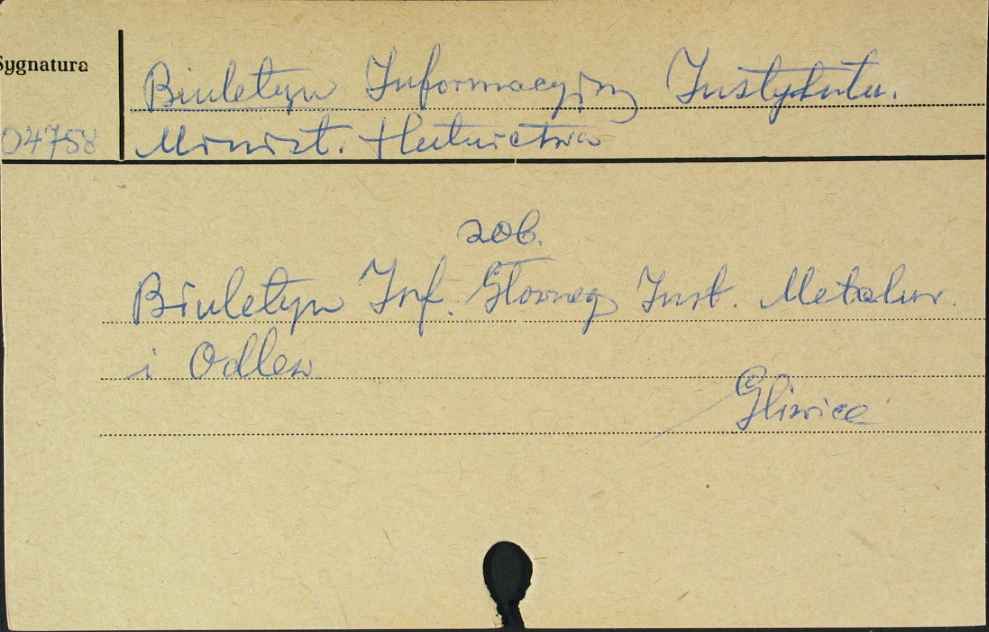 Sygnatura
Biuletyn Informacyjny Instytutu.
04758 Minist. Hutnictwa
zob.
Biuletyn Inf. Głowneg Inst. Metalur.
i Odlew
Gliwice